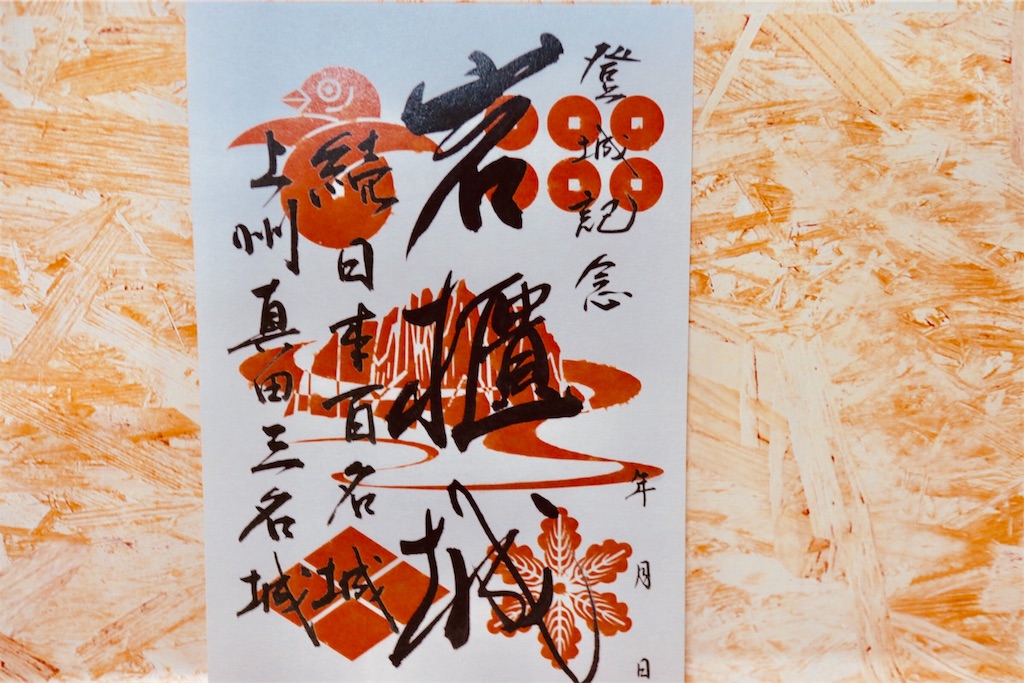 登城記念
年月日
岩櫃城
続日本百名城
上州真田三名城